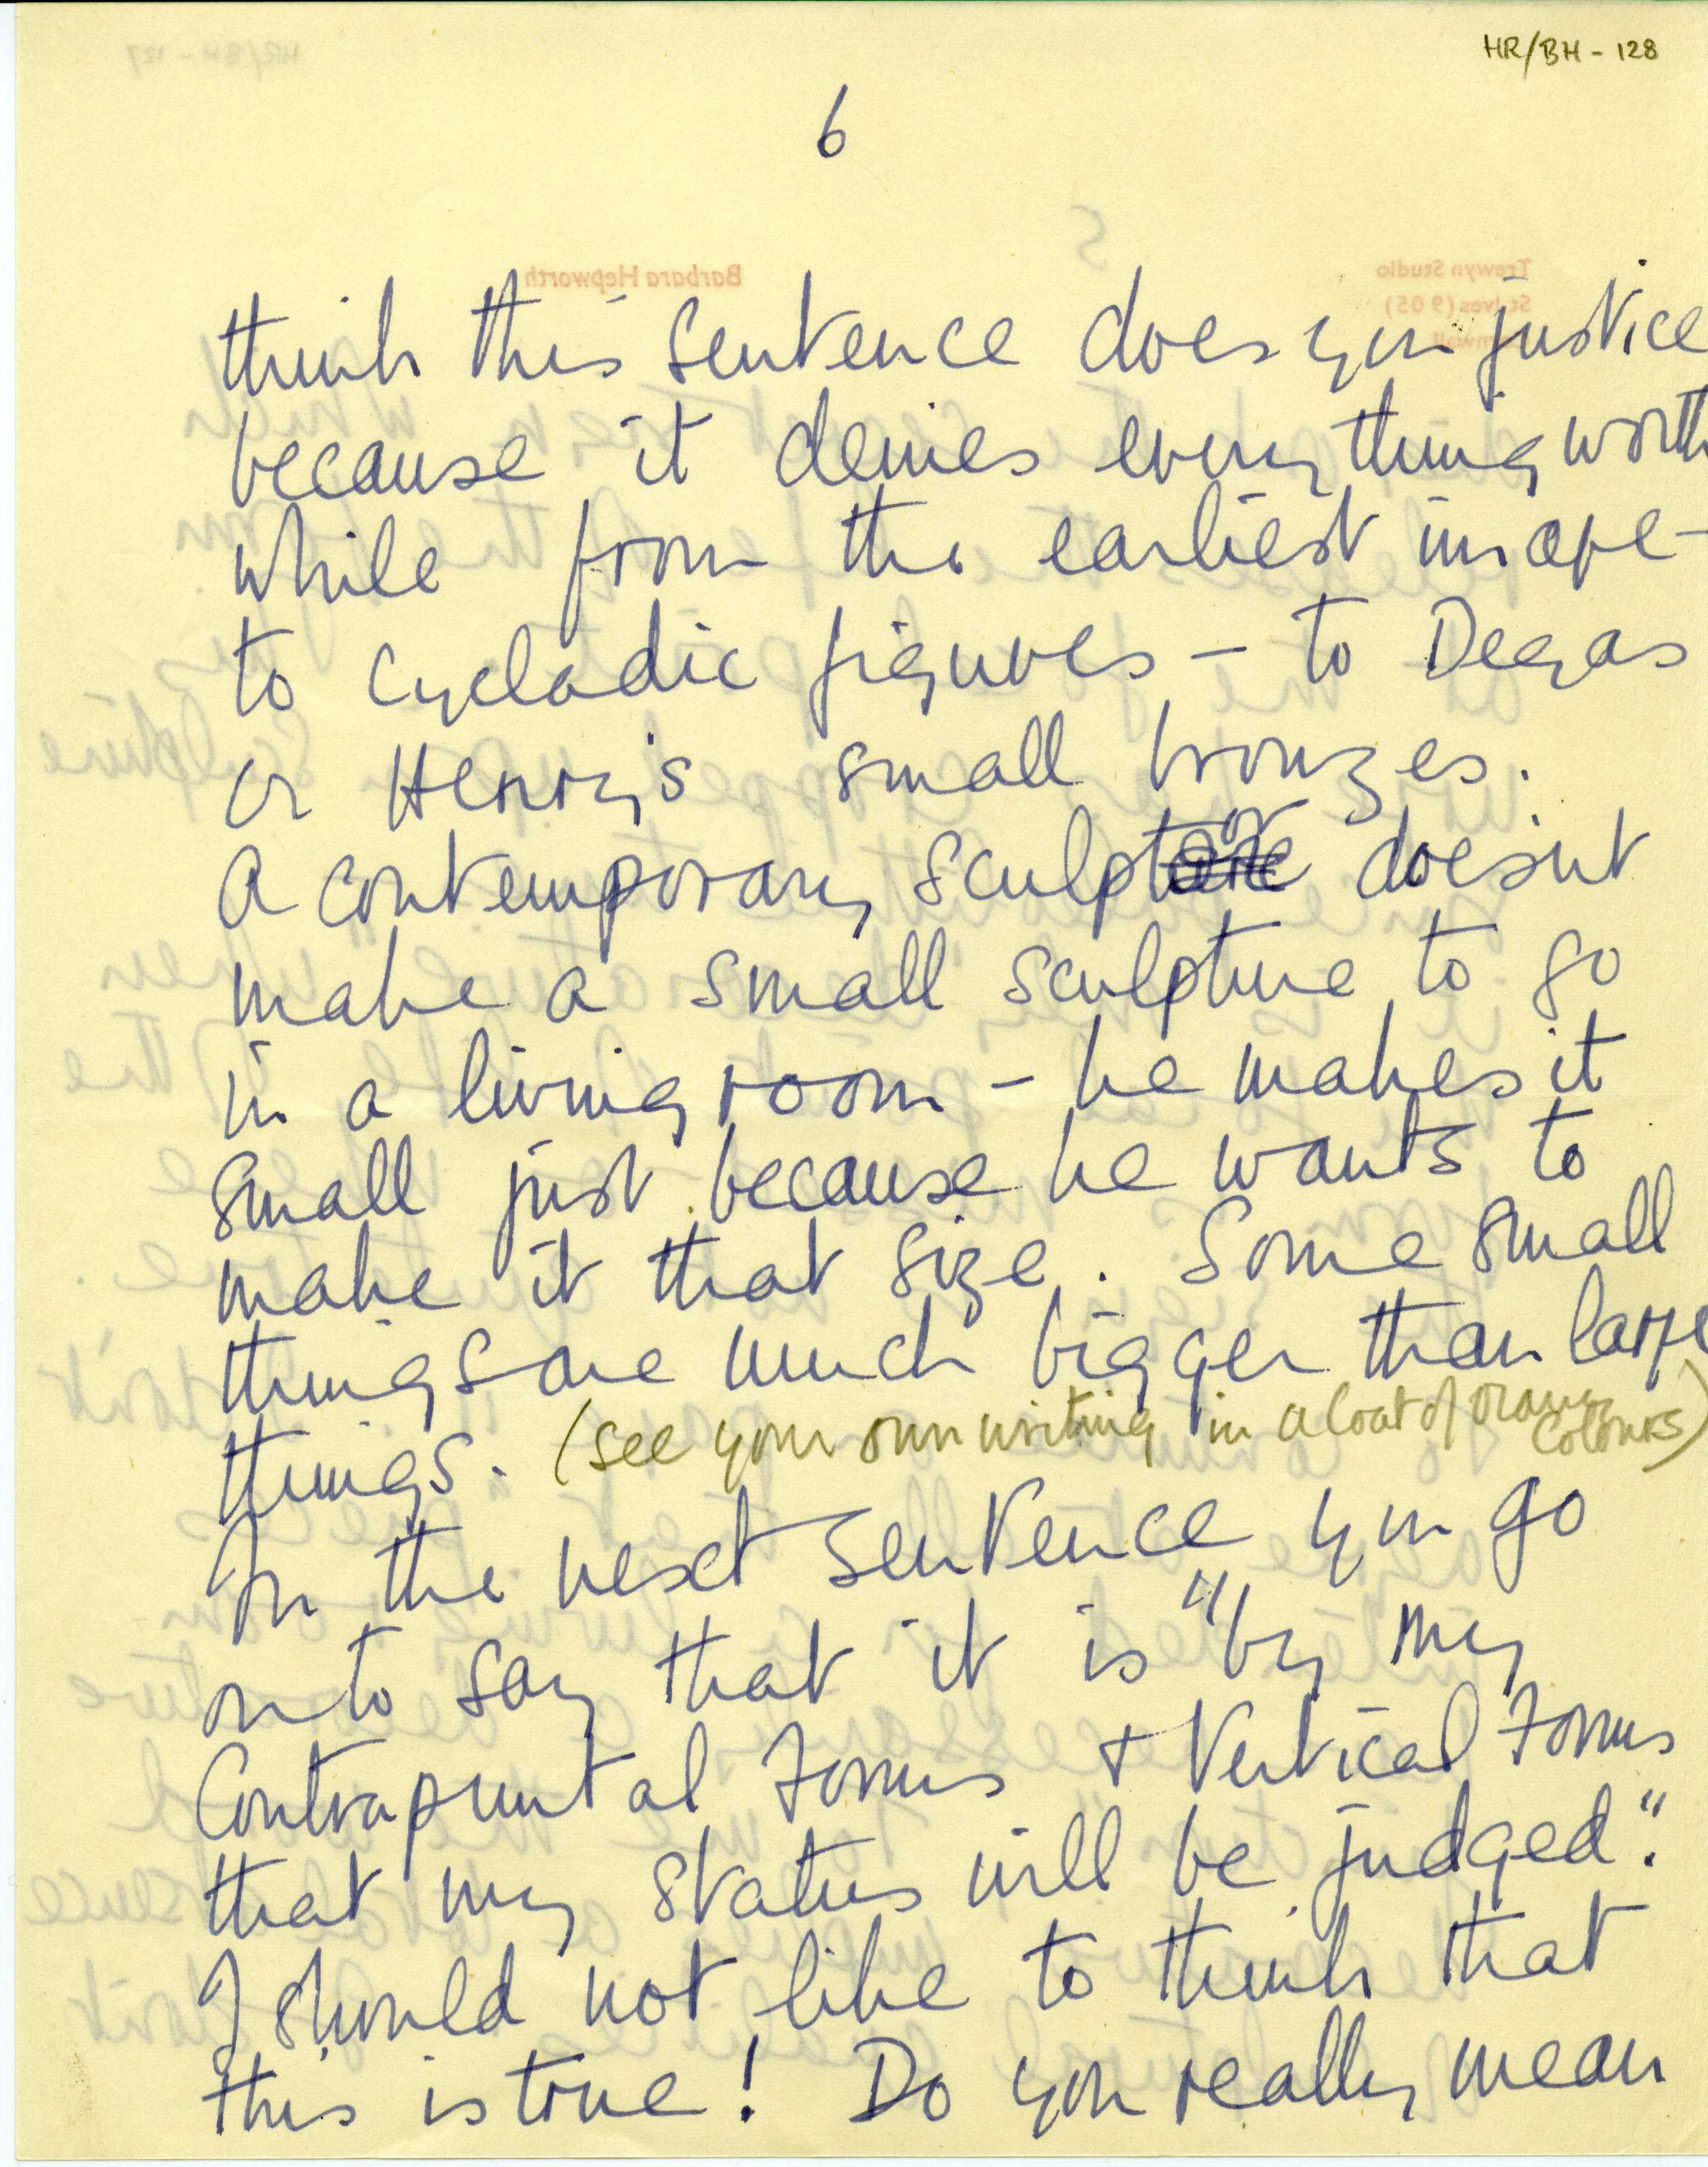 HR/BH - 128
6
think this sentence does you justice
because it denies everything worth
while from the earliest
to Cycladic figures – to Degas
or Henry's small bronzes.
A contemporary sculptor does'nt
make a small sculpture to go
in a living room – he makes it
small just because he wants to
make it that size. Some small
things are much bigger than large
things. (see your own writing in a Coat of Many
Colours)
In the next sentence you go
on to say that it is "by my
Contrapuntal Forms + Vertical Forms
that my status will be judged".
I should not like to think that
this is true! Do you really mean